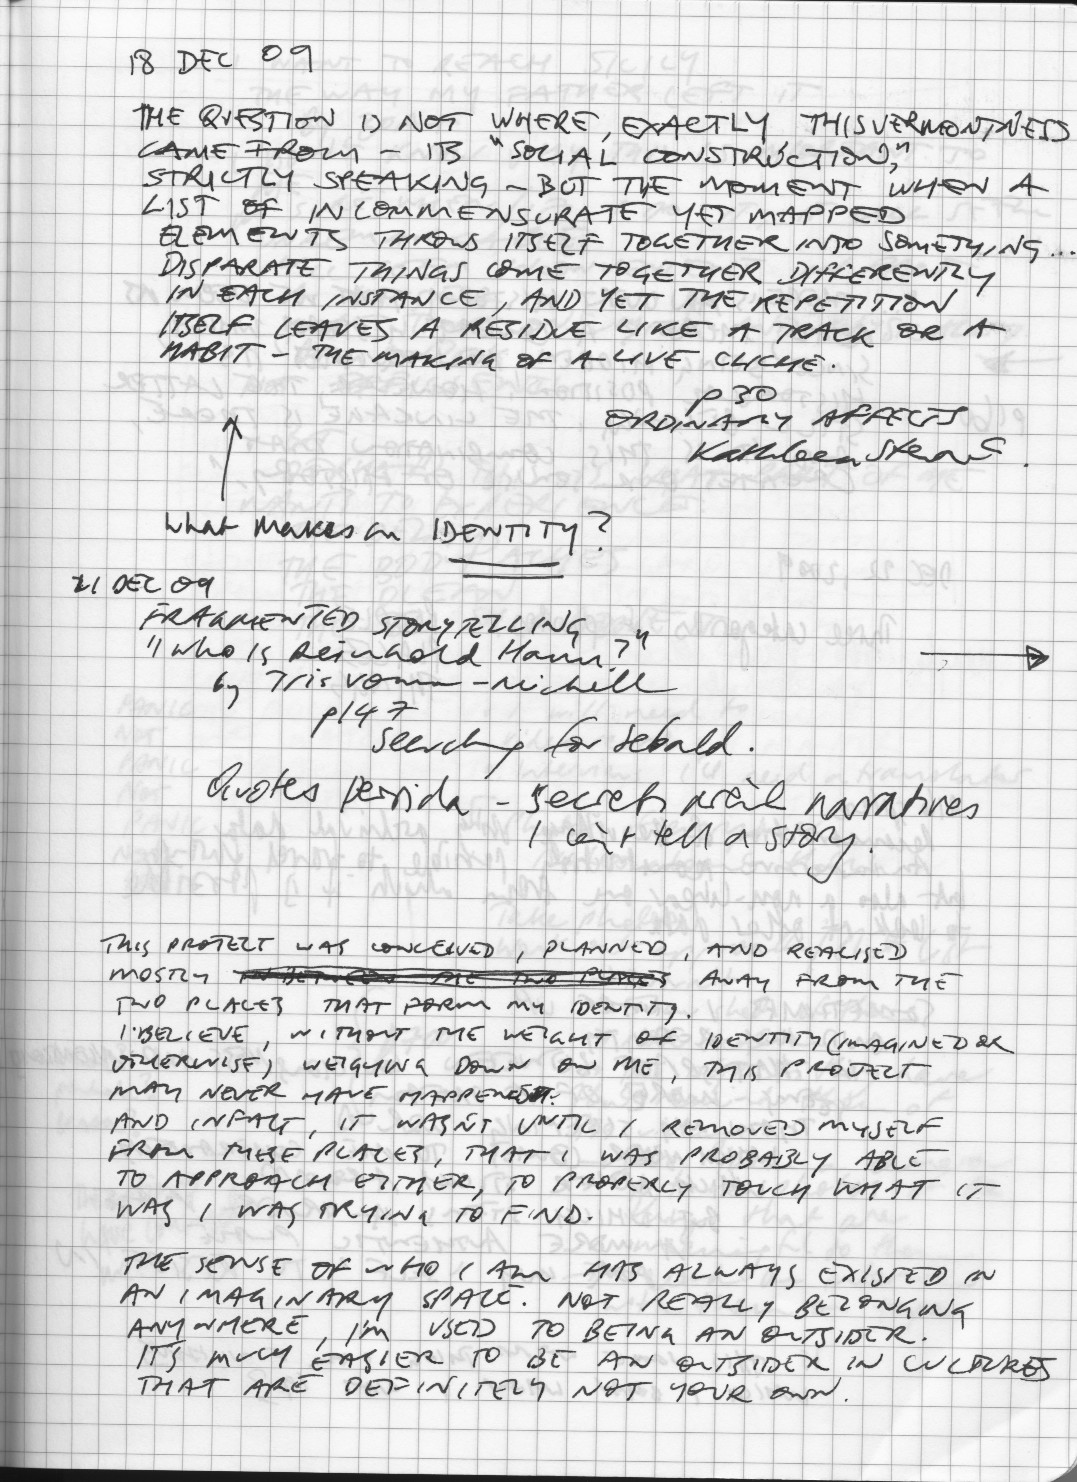 18 DEC 09
THE QUESTION IS NOT WHERE, EXACTLY THIS VERMONTNESS
CAME FROM – ITS "SOCIAL CONSTRUCTION,"
STRICTLY SPEAKING – BUT THE MOMENT WHEN A
LIST OF INCOMMENSURATE YET MAPPED
ELEMENTS THROWS ITSELF TOGETHER INTO SOMETHING...
DISPARATE THINGS COME TOGETHER DIFFERENTLY
IN EACH INSTANCE, AND YET THE REPETITION
ITSELF LEAVES A RESIDUE LIKE A TRACK OR A
HABIT – THE MAKING OF A LIVE CLICHE.
p 30
ORDINARY AFFECTS
Kathleen Stewart.
What makes an IDENTITY?
21 DEC 09
FRAGMENTED STORYTELLING
"Who is Reinhold Hahn?"
by Tris Vonna-Michell
p147
Searching for Sebald.
Quotes Derrida – Secrets narratives
I can't tell a story.
THIS PROJECT WAS CONCEIVED, PLANNED, AND REALISED
MOSTLY IN BETWEEN THE TWO PLACES AWAY FROM THE
TWO PLACES THAT FORM MY IDENTITY.
I BELIEVE, WITHOUT THE WEIGHT OF IDENTITY (IMAGINED OR
OTHERWISE) WEIGHING DOWN ON ME, THIS PROJECT
MAY NEVER HAVE HAPPENED.
AND INFACT, IT WASN'T UNTIL I REMOVED MYSELF
FROM THESE PLACES, THAT I WAS PROBABLY ABLE
TO APPROACH EITHER, TO PROPERLY TOUCH WHAT IT
WAS I WAS TRYING TO FIND.
THE SENSE OF WHO I AM HAS ALWAYS EXISTED IN
AN IMAGINARY SPACE. NOT REALLY BELONGING
ANYWHERE, I'M USED TO BEING AN OUTSIDER.
IT'S MUCH EASIER TO BE AN OUTSIDER IN CULTURES
THAT ARE DEFINITELY NOT YOUR OWN.